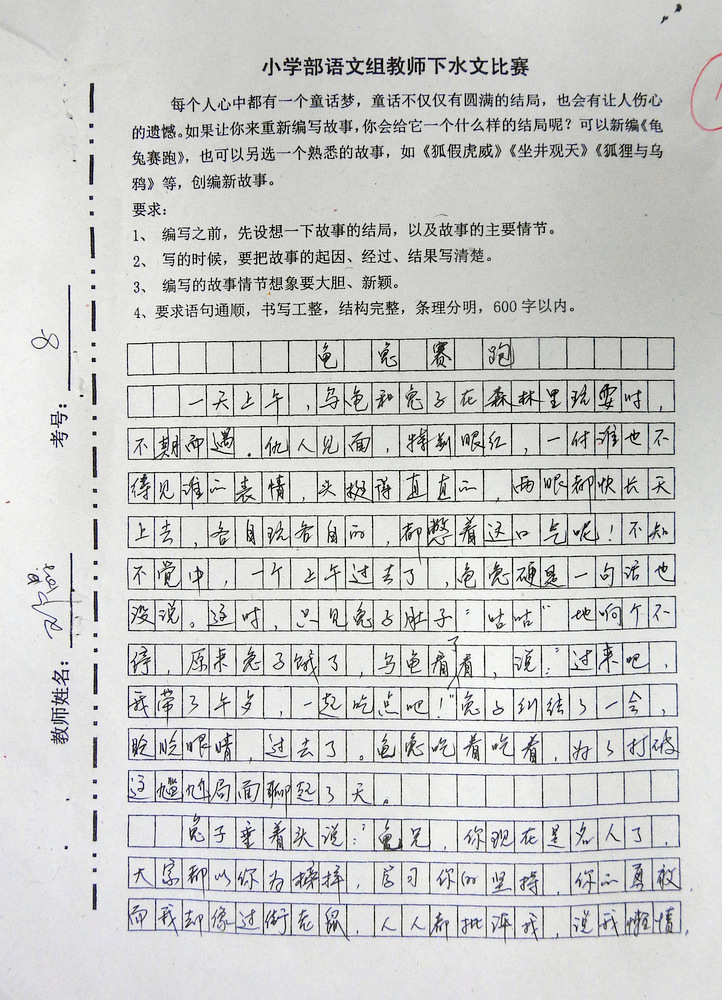 小学部语文组教师下水文比赛
每个人心中都有一个童话梦，童话不仅仅有圆满的结局，也会有让人伤心
的遗憾。如果让你来重新编写故事，你会给它一个什么样的结局呢？可以新编《龟
兔赛跑》，也可以另选一个熟悉的故事，如《狐假虎威》《坐井观天》《狐狸与乌
鸦》等，创编新故事。
要求：
1、 编写之前，先设想一下故事的结局，以及故事的主要情节。
2、 写的时候，要把故事的起因、经过、结果写清楚。
3、 编写的故事情节想象要大胆、新颖。
4、要求语句通顺，书写工整，结构完整，条理分明，600字以内。
考号：8
教师姓名：
龟兔赛跑
一天上午，乌龟和兔子在森林里玩耍时，
不期而遇。仇人见面，特别眼红，一付谁也不
待见谁的表情，头挺得直直的，两眼都快长天
上去，各自玩各自的，都憋着这口气呢！不知
不觉中，一个上午过去了，龟兔硬是一句话也
没说。这时，只见兔子肚子“咕咕”地响个不
停，原来兔子饿了，乌龟看了看，说：“过来吧，
我带了午多，一起吃点吧！”兔子纠结了一会，
眨眨眼睛，过去了。龟兔吃着吃着，为了打破
这尴尬局面聊起了天。
兔子垂着头说：“龟兄，你现在是名人了，
大家都以你为榜样，学习你的坚持，你的勇敢，
而我却像过街老鼠，人人都批评我，说我懒惰，